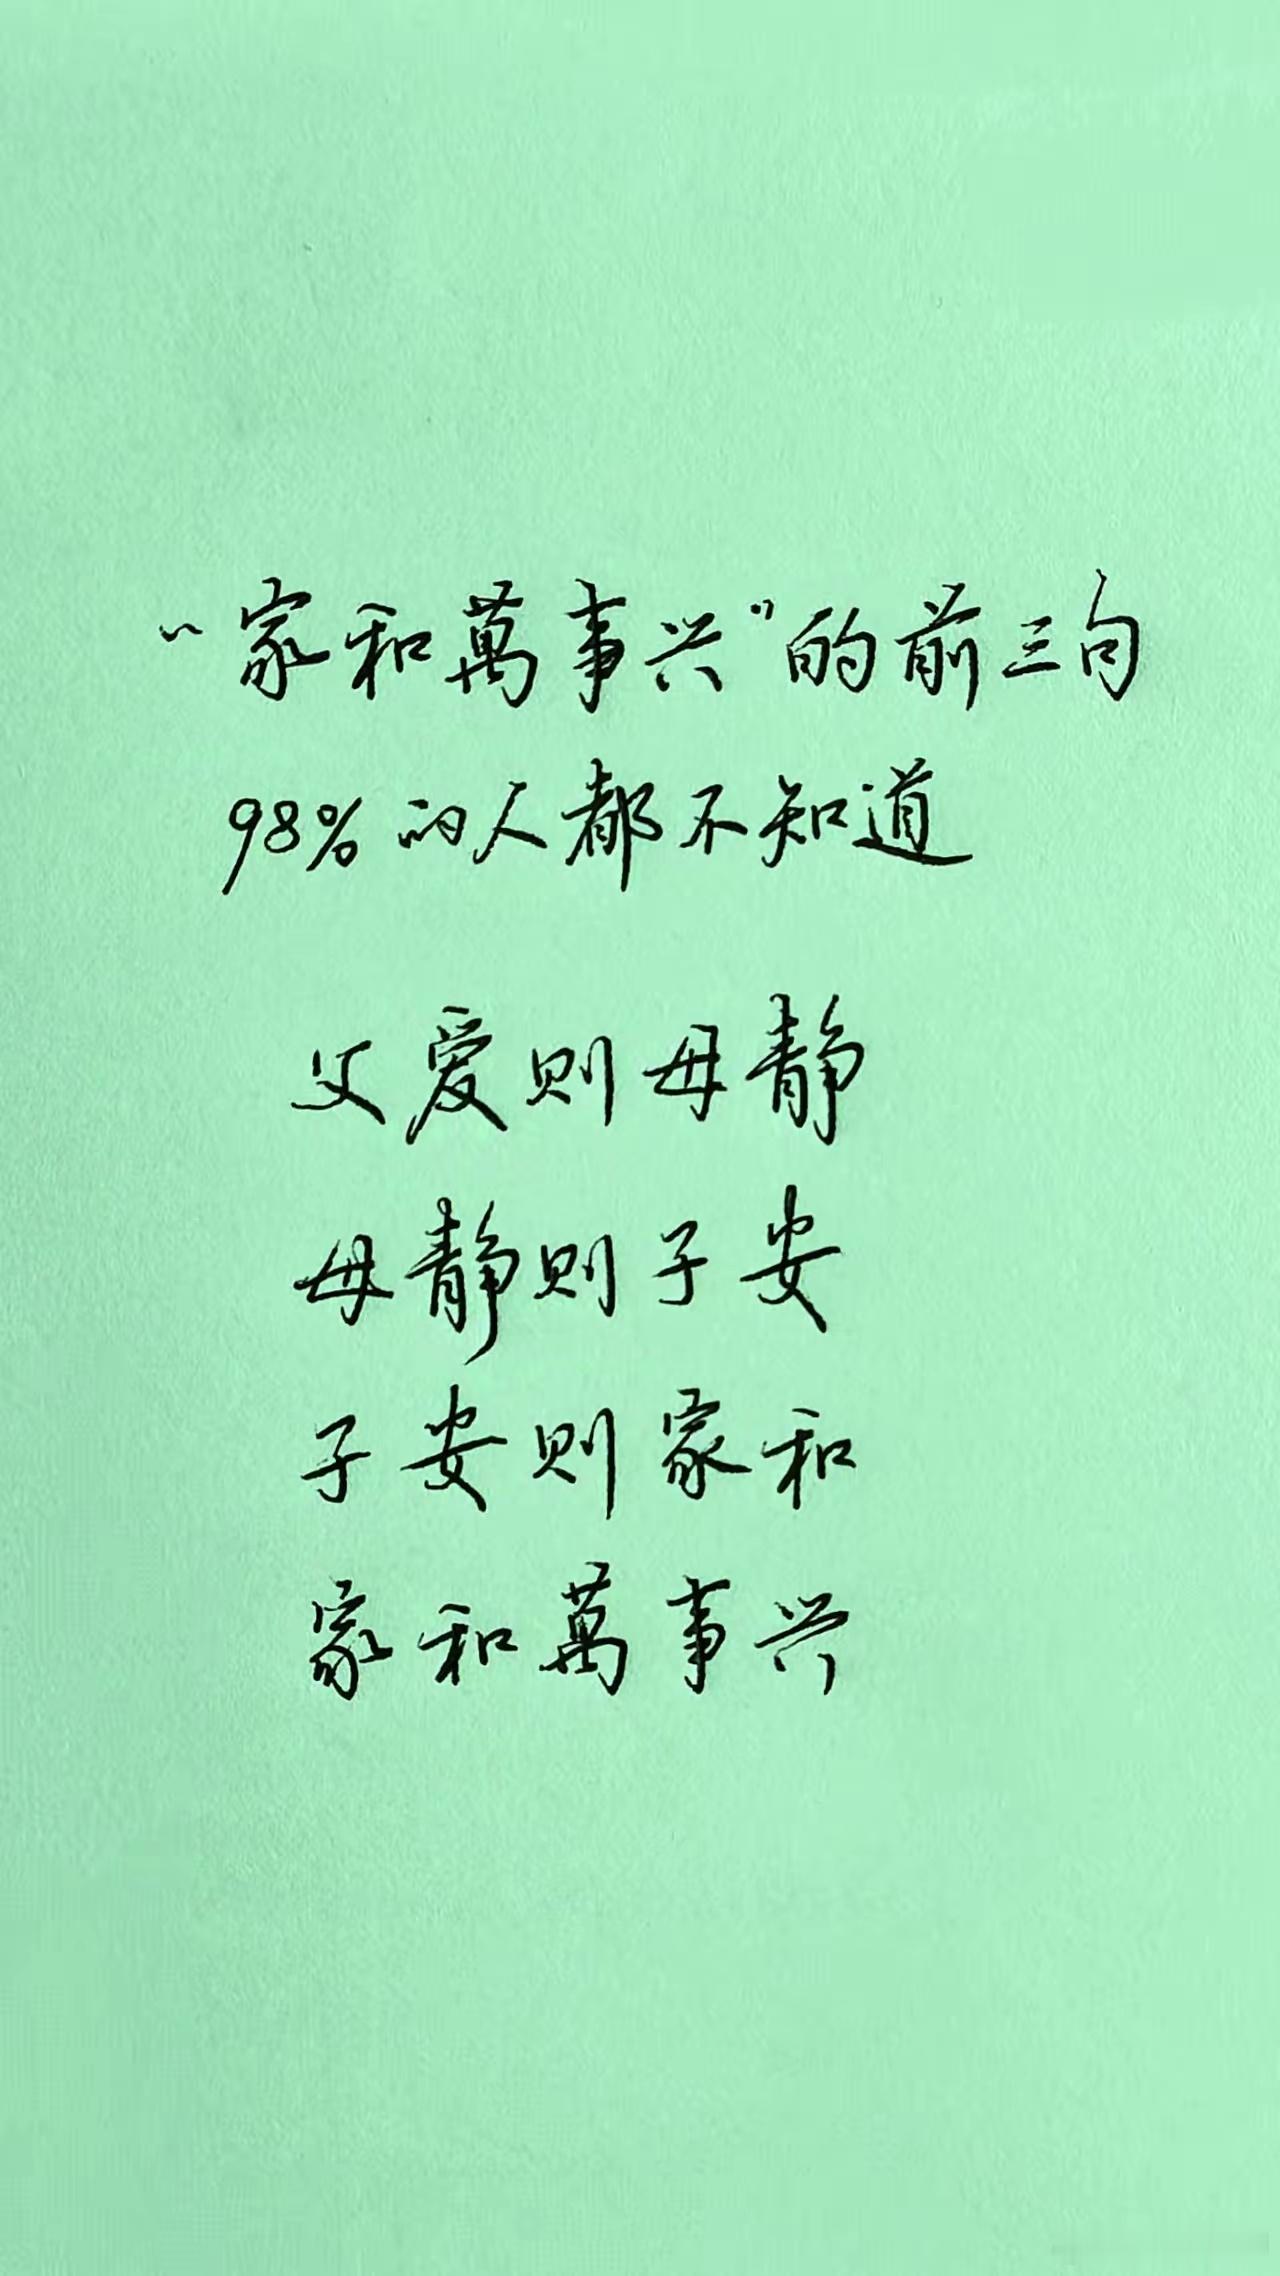 “家和萬事兴”的前三句
98%的人都不知道
父爱则母静
母静则子安
子安则家和
家和萬事兴